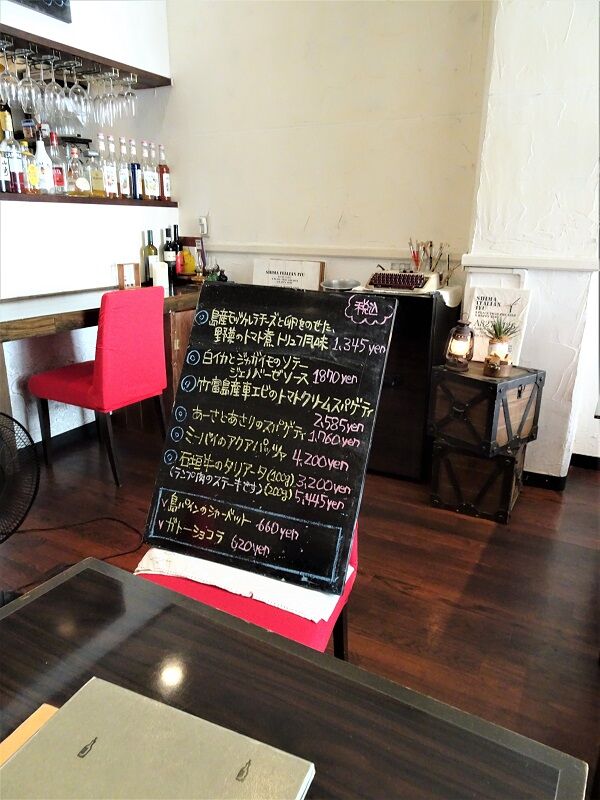 税込
◎島産モッツァレラチーズと卵をのせた、
野菜のトマト煮トリュフ風味 1,345yen
◎白イカとジャガイモのソテー
ジェノバーゼソース 1870yen
◎竹富島産車エビのトマトクリームスパゲティ
2,585yen
◎あーさとあさりのスパゲティ 1,760yen
◎ミーバイのアクアパッツァ 4,200yen
◎石垣牛のタリアータ(100g) 3,200yen
(ランプ肉のステーキです)(200g) 5,445yen
√島パインのシャーベット 660yen
√ガトーショコラ 620yen
SHIMA ITALIAN IYU
SHIMA
ITALIAN
IYU